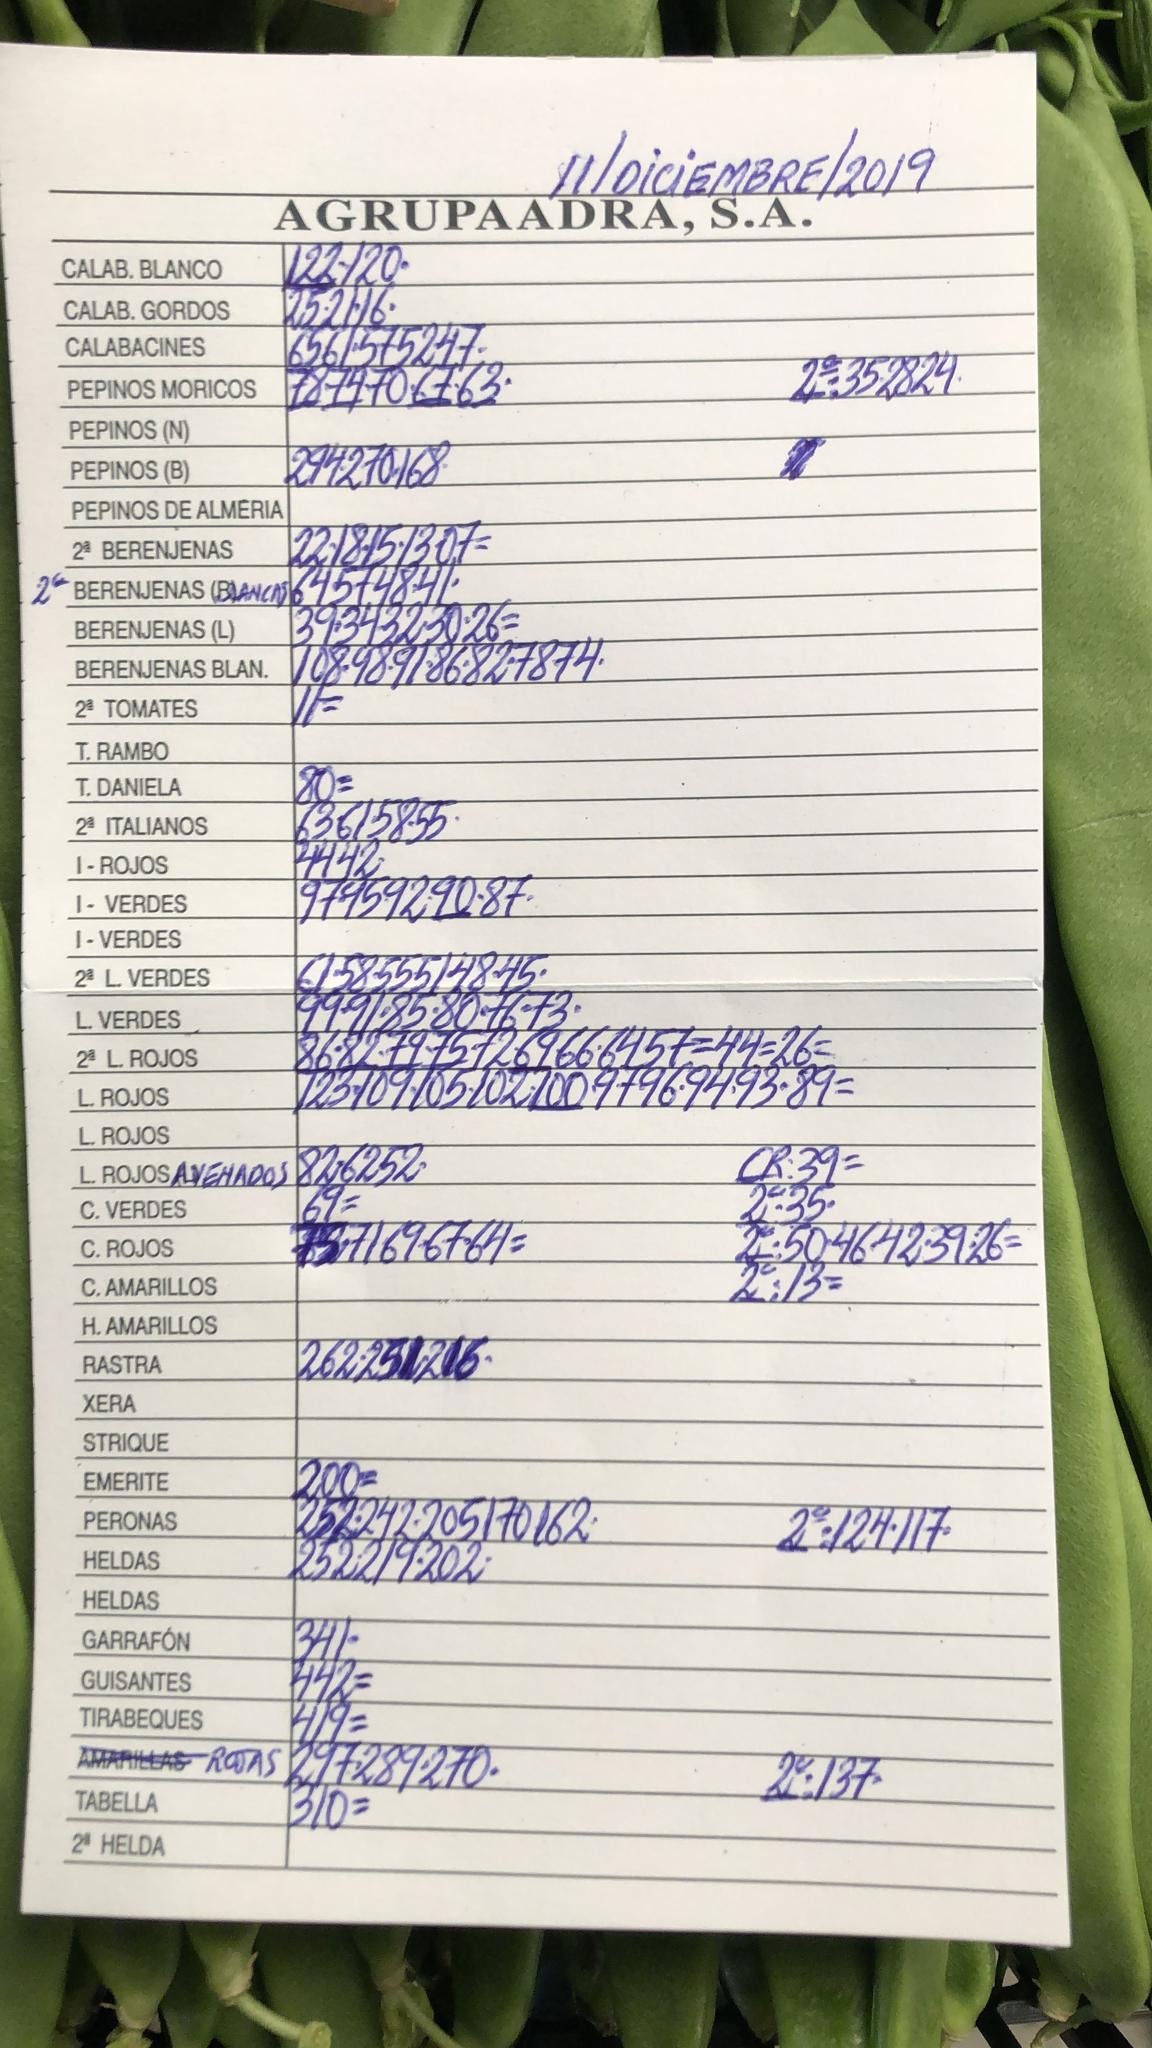 11/DICIEMBRE/2019
AGRUPAADRA, S.A.
CALAB. BLANCO 122·120·
CALAB. GORDOS 25·21·16·
CALABACINES 6561·575247·
PEPINOS MORICOS 787470·67·63· 2ª:352824·
PEPINOS (N)
PEPINOS (B) 294·270·168·
PEPINOS DE ALMERIA
2ª BERENJENAS 22·18·15·1307=
2ª BERENJENAS (BLANCAS 64574841·
BERENJENAS (L) 39·3432·30·26=
BERENJENAS BLAN. 108·98·91·86·82·7874·
2ª TOMATES 11=
T. RAMBO
T. DANIELA 80=
2ª ITALIANOS 63615855·
I - ROJOS 4442·
I - VERDES 979592·90·87·
I - VERDES
2ª L. VERDES 61·58555148·45·
L. VERDES 9991·85·80·76·73·
2ª L. ROJOS 86·82·79·75·7269666457=44=26=
L. ROJOS 123·109·105·102·100·9796·9493·89=
L. ROJOS
L. ROJOS AVENADOS 82·6252· CR:39=
C. VERDES 69= 2ª:35·
C. ROJOS 75·7169·67·64= 2ª:50·4642·39·26=
C. AMARILLOS 2ª:13=
H. AMARILLOS
RASTRA 262·251·216·
XERA
STRIQUE
EMERITE 200=
PERONAS 252·242·205170162· 2ª:124·117·
HELDAS 252219·202·
HELDAS
GARRAFÓN 341·
GUISANTES 442=
TIRABEQUES 419=
AMARILLAS ROJAS 297·289·270· 2ª:137·
TABELLA 310=
2ª HELDA